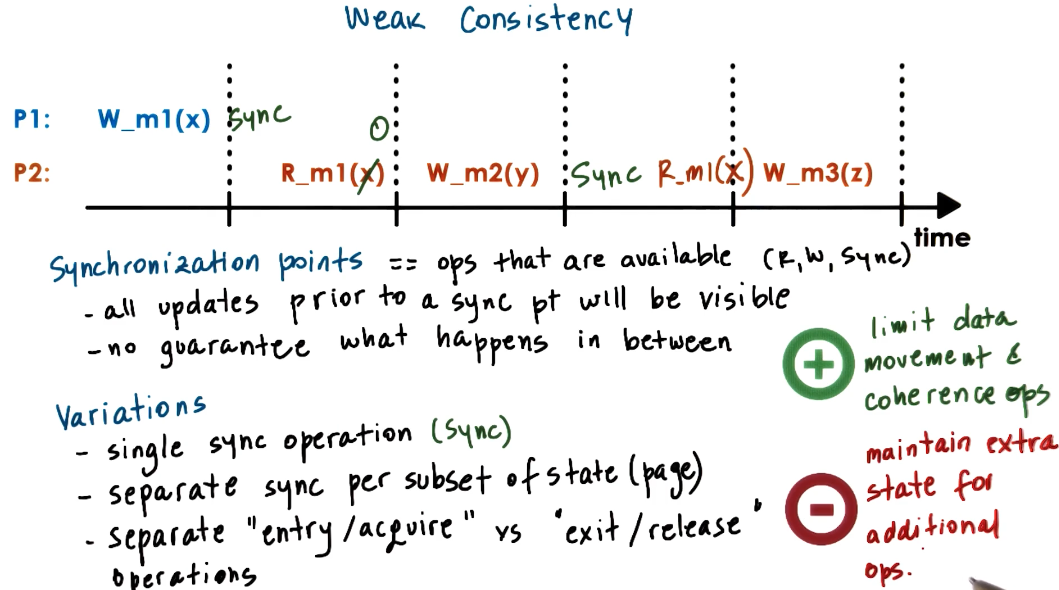 Weak Consistency
P1: W_m1(x) Sync
0
P2: R_m1(x) W_m2(y) Sync R_m1(x) W_m3(z)
time
Synchronization points == ops that are available (R, W, Sync)
- all updates prior to a sync pt will be visible
- no guarantee what happens in between
limit data
movement &
coherence ops
Variations
- single sync operation (Sync)
- separate sync per subset of state (page)
- separate "entry/acquire" vs "exit/release"
operations
maintain extra
state for
additional
ops.